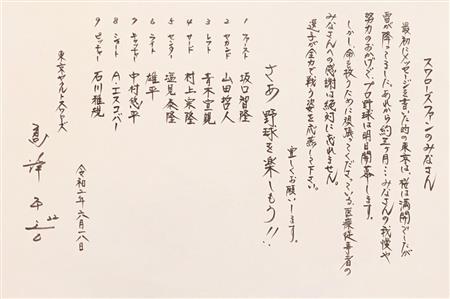 スワローズファンのみなさん
最初にメッセージを書いた時の東京は、桜は満開でしたが
雪が降ってました。あれから約三ヶ月…みなさんの我慢や
努力のおかげで、プロ野球は明日開幕します。
しかし、命を救うために頑張ってくださっている医療従事者の
みなさんへの感謝は絶対に忘れません。
選手が全力で戦う姿を応援して下さい。
宜しくお願いします。
さあ野球を楽しもう!!
1 ファースト 坂口智隆
2 セカンド 山田哲人
3 レフト 青木宣親
4 サード 村上宗隆
5 センター 塩見泰隆
6 ライト 雄平
7 キャッチャー 中村悠平
8 ショート A.エスコバー
9 ピッチャー 石川雅規
令和二年六月一八日
東京ヤクルトスワローズ
高津臣吾 22